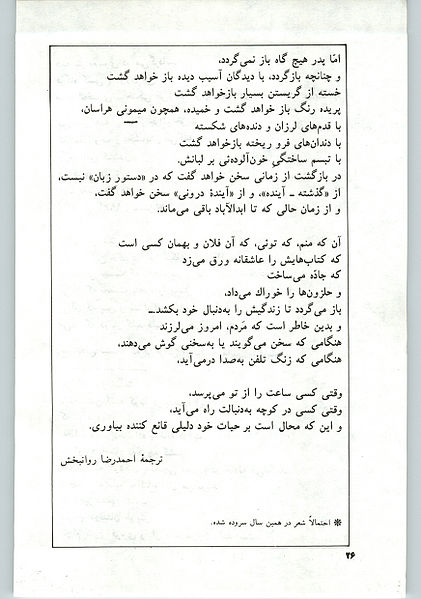 امّا پدر هیچ گاه باز نمی‌گردد،
و چنانچه بازگردد، با دیدگان آسیب دیده باز خواهد گشت
خسته از گریستن بسیار بازخواهد گشت
پریده رنگ باز خواهد گشت و خمیده، همچون میمونی هراسان،
با قدم‌های لرزان و دنده‌های شکسته
با دندان‌های فرو ریخته بازخواهد گشت
با تبسم ساختگیِ خون‌آلوده‌ئی بر لبانش.
در بازگشت از زمانی سخن خواهد گفت که در «دستور زبان» نیست،
از «گذشته ـ آینده»، و از «آیندهٔ درونی» سخن خواهد گفت،
و از زمان حالی که تا ابدالآباد باقی می‌ماند.
آن که منم، که توئی، که آن فلان و بهمان کسی است
که کتاب‌هایش را عاشقانه ورق می‌زد
که جادّه می‌ساخت
و حلزون‌ها را خوراك می‌داد،
باز می‌گردد تا زندگیش را به‌دنبال خود بکشد ــ
و بدین خاطر است که مَردم، امروز می‌لرزند
هنگامی که سخن می‌گویند یا به‌سخنی گوش می‌دهند،
هنگامی که زنگ تلفن به‌صدا درمی‌آید،
وقتی کسی ساعت را از تو می‌پرسد،
وقتی کسی در کوچه به‌دنبالت راه می‌آید،
و این که محال است بر حیات خود دلیلی قانع کننده بیاوری.
ترجمهٔ احمدرضا روانبخش
❋ احتمالاً شعر در همین سال سروده شده.
۲۶